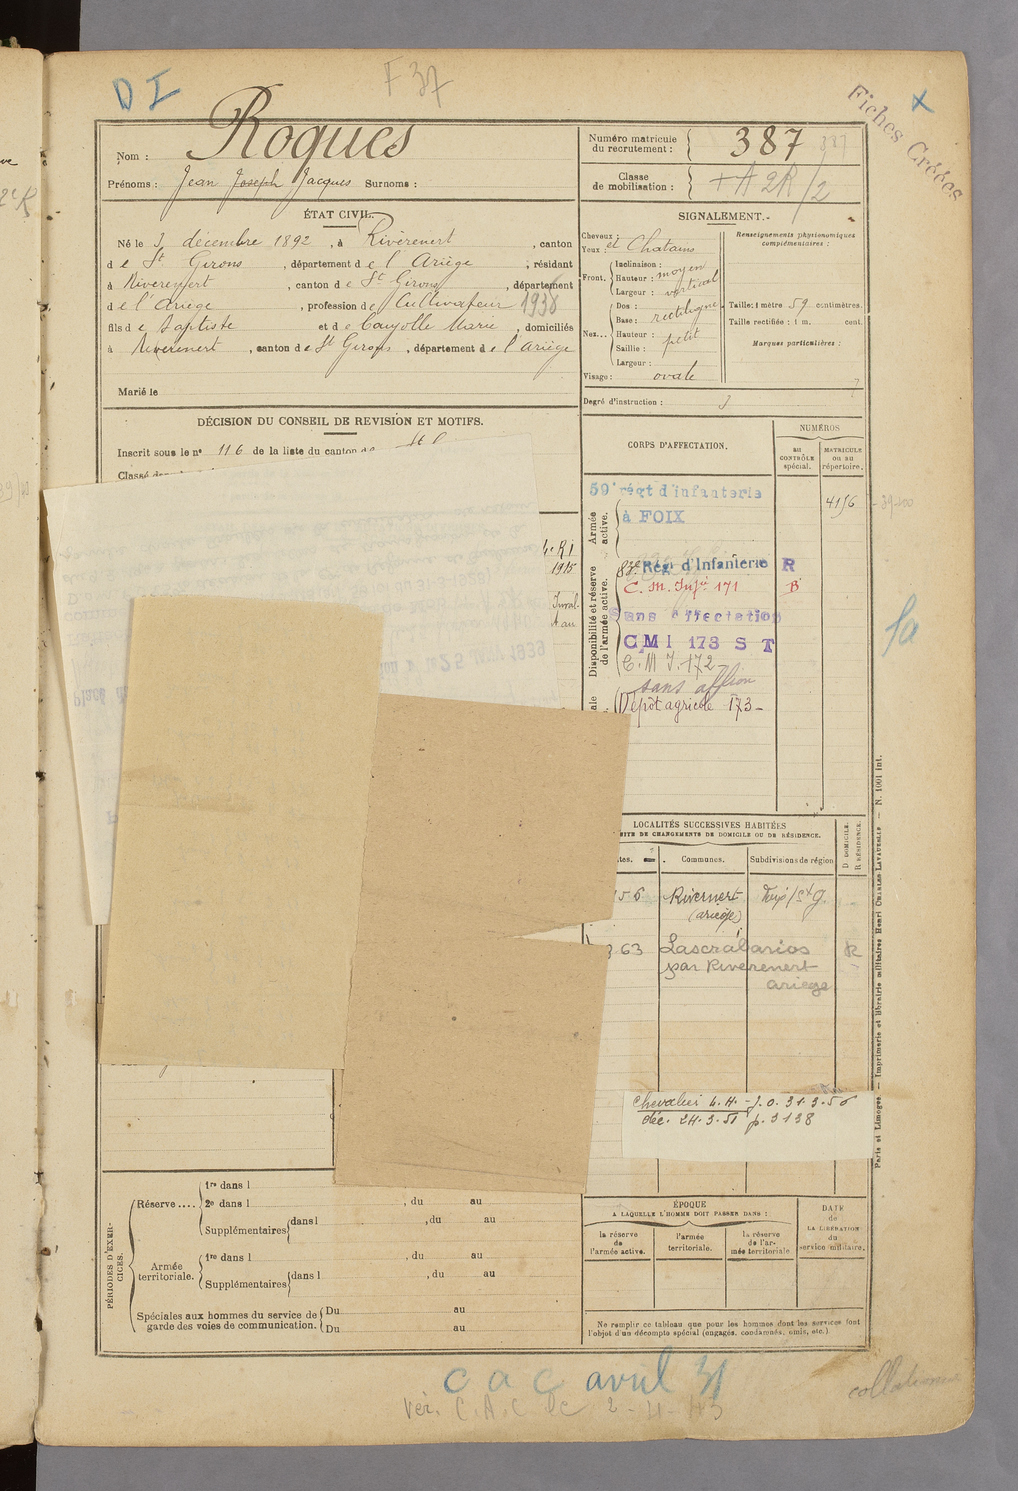 D I
F 37
Fiches Créées
Nom : Roques
Prénoms : Jean Joseph Jacques Surnoms :
Numéro matricule du recrutement : 387
Classe de mobilisation :
ÉTAT CIVIL.
Né le 3 décembre 1892, à Rivèrenert, canton
de St Girons, département de l'Ariège, résidant
à Rivèrenert, canton de St Girons, département
de l'Ariège, profession de Cultivateur 1936
fils de Baptiste et de Caujolle Marie, domiciliés
à Rivèrenert, canton de St Girons, département de l'Ariège
Marié le
SIGNALEMENT.
Cheveux :
Yeux : et Chatains
Front. Inclinaison :
Hauteur : moyen
Largeur : vertical
Nez... Dos : rectiligne
Base :
Hauteur : petit
Saillie :
Largeur :
Visage : ovale
Renseignements physionomiques
complémentaires :
Taille : 1 mètre 59 centimètres.
Taille rectifiée : 1 m. cent.
Marques particulières :
Degré d'instruction : 3
DÉCISION DU CONSEIL DE REVISION ET MOTIFS.
Inscrit sous le n° 116 de la liste du canton de
1915
25 1939
CORPS D'AFFECTATION.
NUMÉROS
au CONTRÔLE spécial.
MATRICULE ou au répertoire.
Armée active.
59e régt d'infanterie
à FOIX
4156
Disponibilité et réserve de l'armée active.
83e Rég. d'Infanterie R
C. M. Infie 171 B
Sans affectation
CMI 173 S T
C. M. I. 172
sans affion
Dépôt agricole 173
LOCALITÉS SUCCESSIVES HABITÉES
DE CHANGEMENTS DE DOMICILE OU DE RÉSIDENCE.
Communes.
Subdivisions de région
D. DOMICILE.
R. RÉSIDENCE.
56 Rivernert Foix/St G.
(ariège)
63 Lascrabarios R
par Riverenert
ariege
Chevalier L.H. - J.O. 31.3.56
déc. 24.3.51 p. 3138
Paris et Limoges. — Imprimerie et librairie militaires Henri CHARLES-LAVAUZELLE — N. 1001 int.
PÉRIODES D'EXERCICES.
Réserve.... 1re dans l
2e dans l , du au
Supplémentaires dans l , du au
Armée territoriale. 1re dans l , du au
Supplémentaires dans l , du au
Spéciales aux hommes du service de
garde des voies de communication. Du au
Du au
ÉPOQUE
A LAQUELLE L'HOMME DOIT PASSER DANS :
la réserve de l'armée active.
l'armée territoriale.
la réserve de l'armée territoriale
DATE de LA LIBÉRATION du service militaire.
Ne remplir ce tableau que pour les hommes dont les services font
l'objet d'un décompte spécial (engagés, condamnés, omis, etc.)
C a C avril 31
collationné